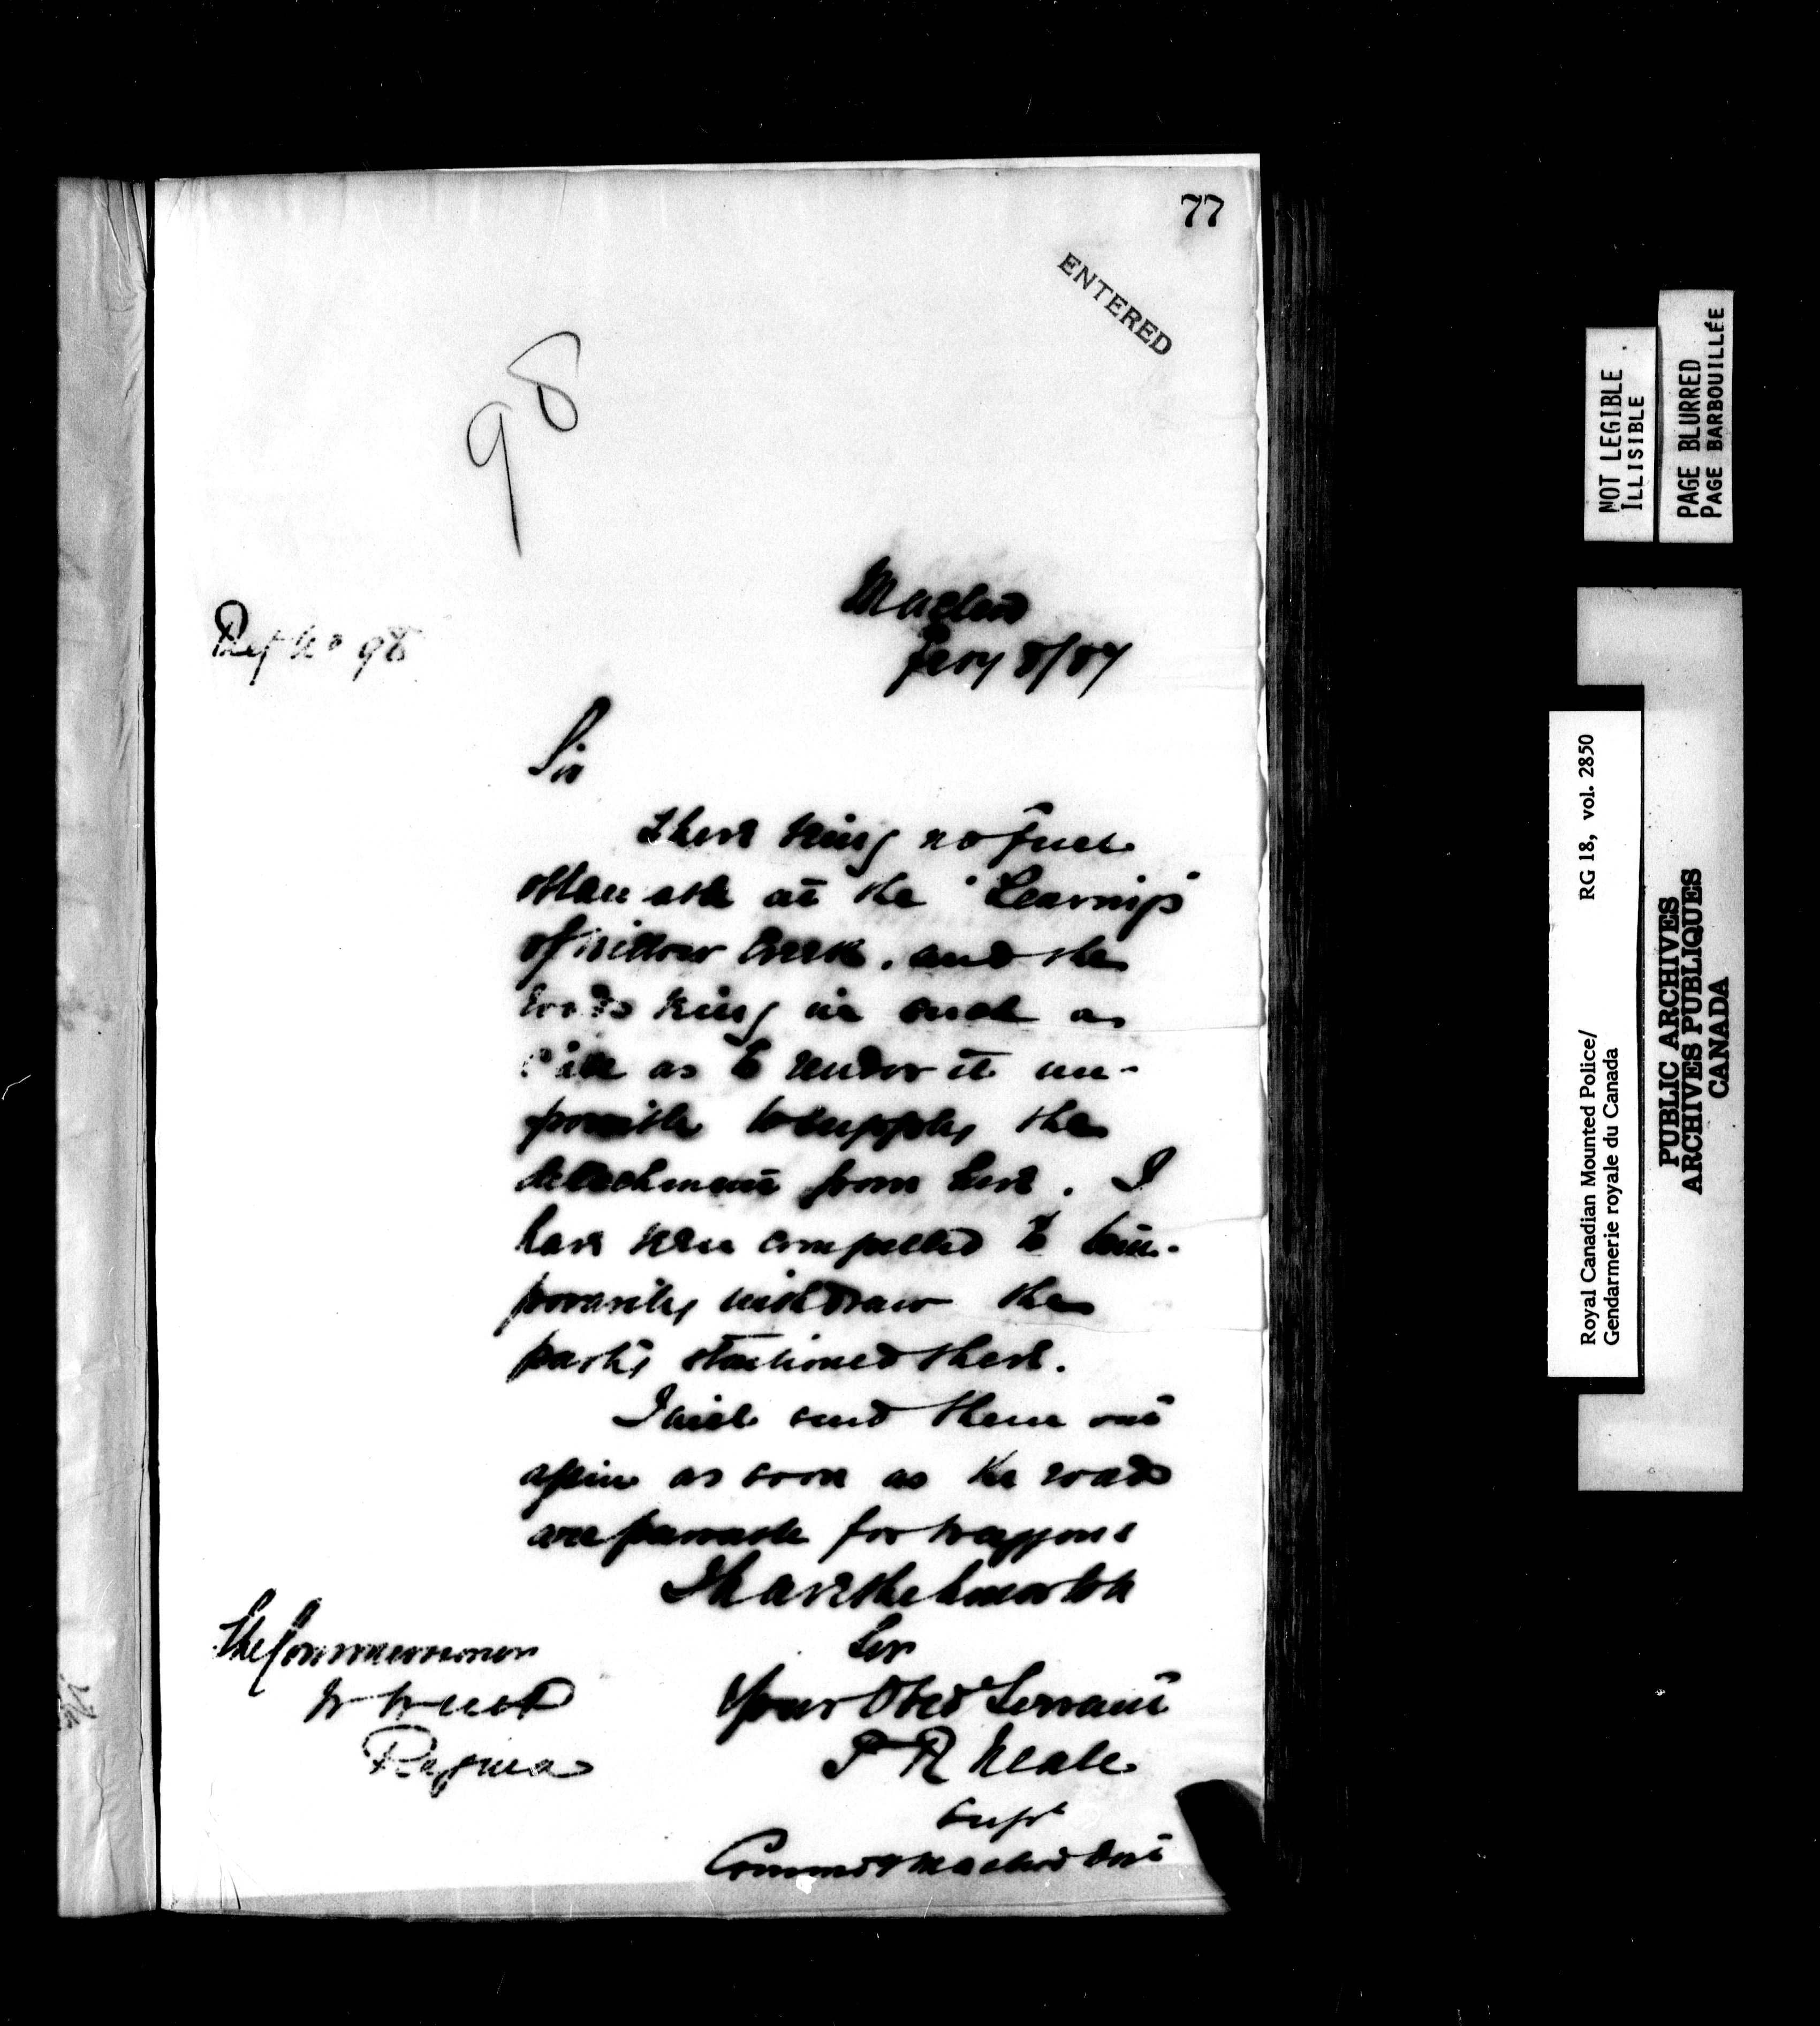 77
ENTERED
98
Macleod
Feby 8/87
Ref No 98
Sir
There being no fuel
obtainable at the "Leavings"
of Willow Creek, and the
roads being in such a
state as to render it im-
possible to supply the
detachment from here. I
have been compelled to tem-
porarily withdraw the
party stationed there.
I will send them out
again as soon as the roads
are passable for waggons
I have the honor to be
Sir
Your Obed Servant
P R Neale
Supt
Commdg Macleod Dist
The Commissioner
N W M P
Regina
NOT LEGIBLE
ILLISIBLE
PAGE BLURRED
PAGE BARBOUILLÉE
Royal Canadian Mounted Police/ RG 18, vol. 2850
Gendarmerie royale du Canada
PUBLIC ARCHIVES
ARCHIVES PUBLIQUES
CANADA